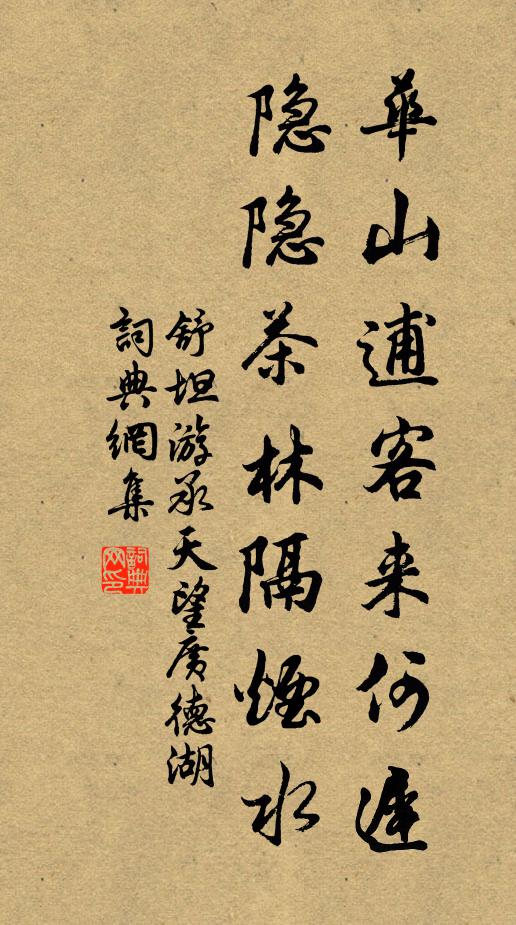 華山逋客来何遅
隐隐茶林隔煙水
舒坦游承天望廣德湖
詞典網集
詞典網印